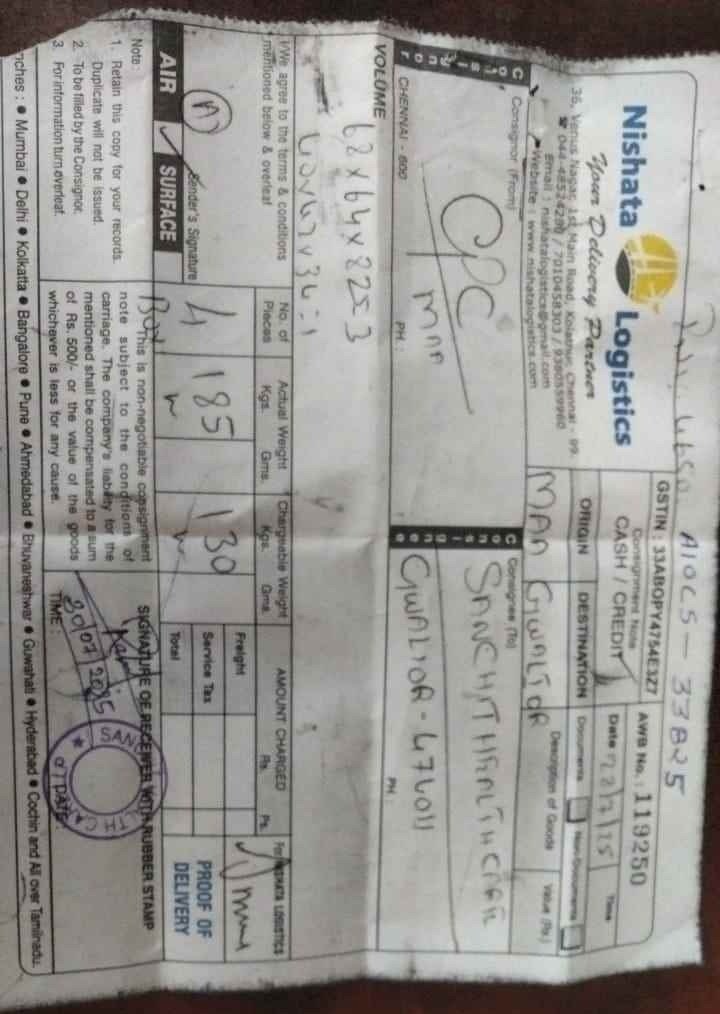 A10CS - 33825
Nishata Logistics
Your Delivery Partner
36, Venus Nagar, 1st Main Road, Kolathur, Chennai - 99.
☎ 044-48524298 / 7010458303 / 9380559960
Email : nishatalogistics@gmail.com
Website : www.nishatalogistics.com
GSTIN : 33ABOPY4754E3Z7
Consignment Note
CASH / CREDIT
AWB No. : 119250
Date 22/7/25
Time
ORIGIN
DESTINATION
Documents
Non-Documents
MAA
GWALIOR
Description of Goods
Value (Rs.)
Consignor
Consignor (From)
CPC
MAA
CHENNAI - 600
PH :
Consignee
Consignee (To)
SANCHIT HEALTHCARE
GWALIOR - 474011
PH :
VOLUME
62 x 64 x 82 = 3
I/We agree to the terms & conditions
mentioned below & overleaf
Sender's Signature
AIR
SURFACE
No. of Pieces
Actual Weight
Kgs. Gms.
Chargeable Weight
Kgs. Gms.
4
Box
185
130
AMOUNT CHARGED
Rs. Ps.
Freight
Service Tax
Total
For NISHATA LOGISTICS
PROOF OF
DELIVERY
Note :
1. Retain this copy for your records.
Duplicate will not be issued.
2. To be filled by the Consignor.
3. For information turn overleaf.
This is non-negotiable consignment
note subject to the conditions of
carriage. The company's liability for the
mentioned shall be compensated to a sum
of Rs. 500/- or the value of the goods
whichever is less for any cause.
SIGNATURE OF RECEIVER WITH RUBBER STAMP
30/07/2025
TIME :
DATE :
nches : ● Mumbai ● Delhi ● Kolkatta ● Bangalore ● Pune ● Ahmedabad ● Bhuvaneshwar ● Guwahati ● Hyderabad ● Cochin and All over Tamilnadu.